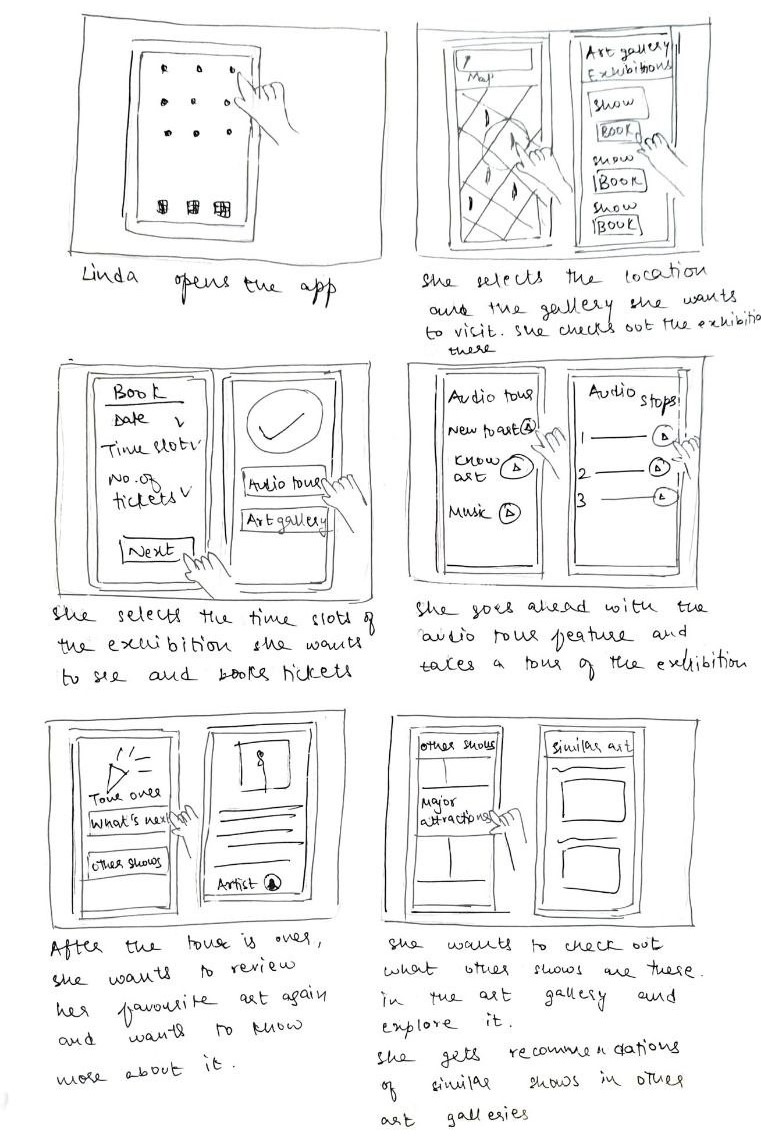 Linda opens the app
Map
Art gallery
Exhibitions
Show
BOOK
show
BOOK
show
BOOK
She selects the location
and the gallery she wants
to visit. She checks out the exhibition
there
Book
Date
Time slot
No. of
tickets
Next
Audio tour
Art gallery
She selects the time slots of
the exhibition she wants
to see and books tickets
Audio tour
New to art
Know
art
Music
Audio stops
1
2
3
She goes ahead with the
audio tour feature and
takes a tour of the exhibition
Tour over
What's next
other shows
Artist
After the tour is over,
she wants to review
her favourite art again
and wants to know
more about it.
other shows
Major
attractions
similar art
she wants to check out
what other shows are there.
in the art gallery and
explore it.
she gets recommendations
of similar shows in other
art galleries